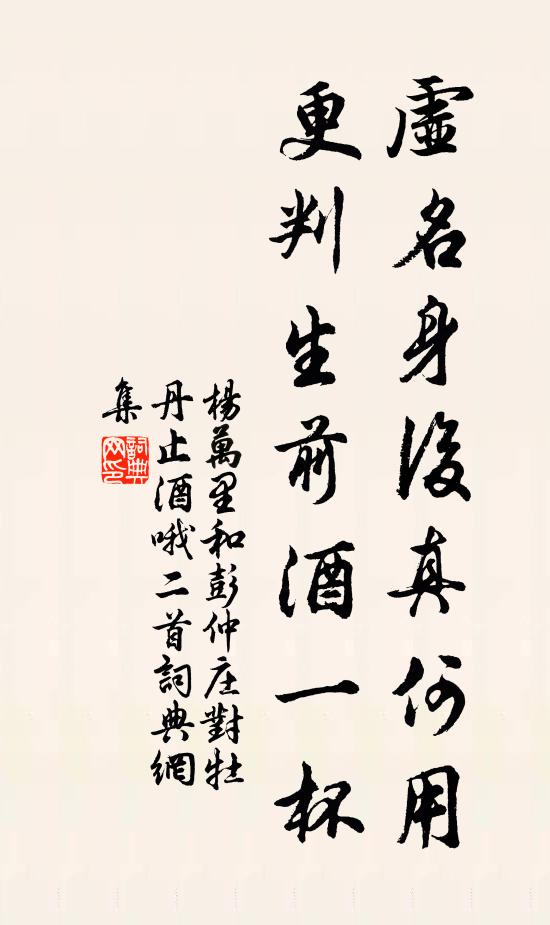 虛名身後真何用
更判生前酒一杯
楊萬里和彭仲庄對牡
丹止酒哦二首詞典網
集
詞典網印